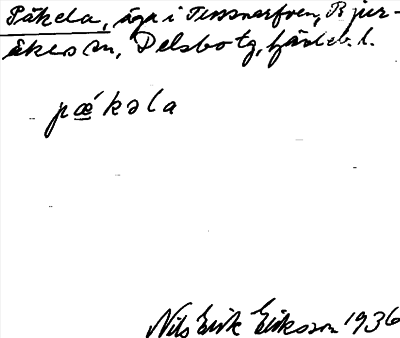 Påkela, äga i Tensnarfven, Bjur-
åkers sn, Delsbo tg, Gävleb. l.
pǽkəla
Nils Erik Eriksson 1936